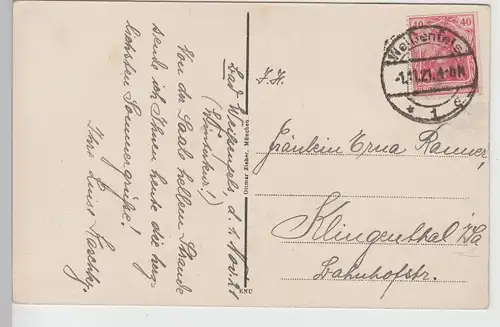 Bad Weißenfels, d. 1. Nov. 21
(Winterkur!)
Von der Saale hellem Strande
sende ich Ihnen heute die herz-
lichsten Sonnengrüße!
Ihre Luise
Ottmar Zieher, München
40 40
Weißenfels
-1.11.21.4-5N
F. H.
Fräulein Erna Ranner,
Klingenthal i/Sa
Bahnhofstr.